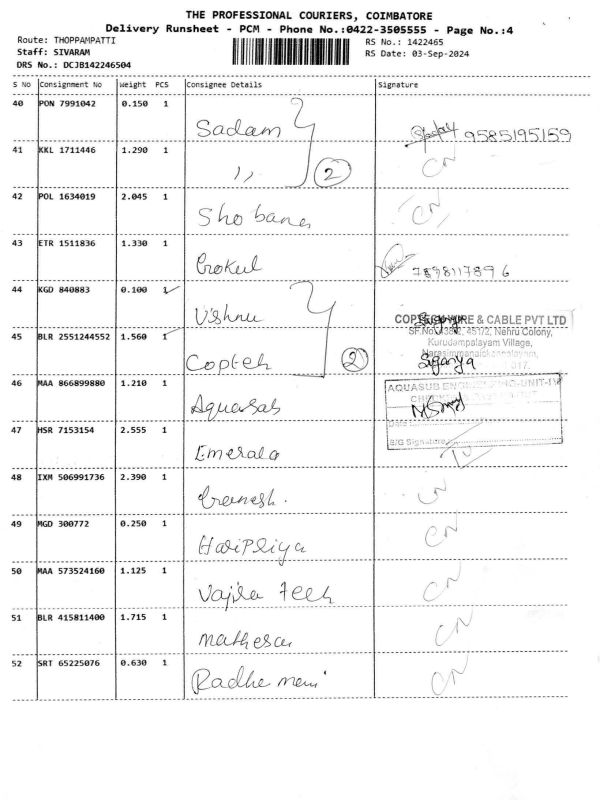 THE PROFESSIONAL COURIERS, COIMBATORE
Delivery Runsheet - PCM - Phone No.:0422-3505555 - Page No.:4
Route: THOPPAMPATTI RS No.: 1422465
Staff: SIVARAM RS Date: 03-Sep-2024
DRS No.: DCJB142246504
S No Consignment No Weight PCS Consignee Details Signature
40 PON 7991042 0.150 1
Sadam 9585195159
41 KKL 1711446 1.290 1 CN
,, 2
42 POL 1634019 2.045 1 CN
Shobana
43 ETR 1511836 1.330 1
Gokul 7898117896
44 KGD 840883 0.100 1
Vishnu COPTECH WIRE & CABLE PVT LTD
SF.No. 438/2, 451/2, Nehru Colony,
45 BLR 2551244552 1.560 1 Kurudampalayam Village,
Narasimmanaickenpalayam,
Coptech 2
46 MAA 866899880 1.210 1 AQUASUB ENGINEERING-UNIT-
Aquasub
47 HSR 7153154 2.555 1 S/G Signature
Emerald
48 IXM 506991736 2.390 1 CN
Ganesh.
49 MGD 300772 0.250 1 CN
Haripriya
50 MAA 573524160 1.125 1 CN
Vajra Tech
51 BLR 415811400 1.715 1 CN
52 SRT 65225076 0.630 1 CN
Radhe